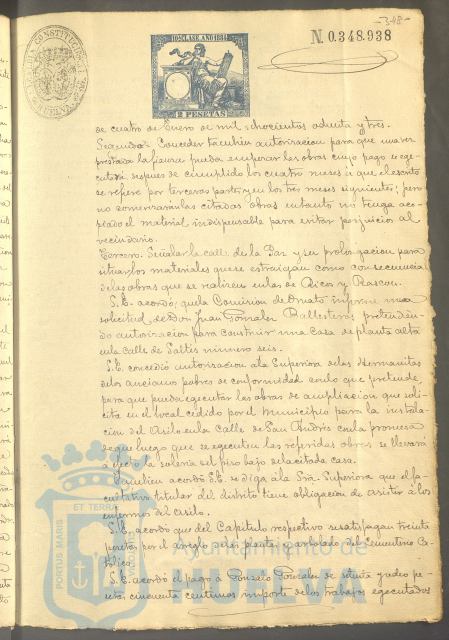 -348-
10ª CLASE. AÑO 1884
N. 0.348.938
2 PESETAS
de cuatro de Enero de mil ochocientos ochenta y tres.
Segundo: Conceder tambien autorizacion para que una vez
prestada la fianza pueda empezar las obras cuyo pago se eje-
cutará despues de cumplido los cuatro meses á que el escrito
se refiere por terceras partes y en los tres meses siguientes; pero
no comenzarán las citadas obras entanto no tenga aco-
piado el material indispensable para evitar perjuicios al
vecindario.
Tercero: Señalar la calle de la Paz y su prolongacion para
situar los materiales que se estraigan como consecuencia
de las obras que se realicen en las de Ricos y Rascon.
S.E. acordó que la Comision de Ornato informe una
solicitud de Don Juan Gonzalez Ballesteros pretendien-
do autorizacion para construir una casa de planta alta
en la calle de Saltés número seis.
S.E. concedió autorizacion á la Superiora de las Hermanitas
de los ancianos pobres de conformidad con lo que pretende,
para que pueda ejecutar las obras de ampliacion que soli-
cita en el local cedido por el Municipio para la instala-
cion del Asilo en la calle de San Andrés con la promesa
de que luego que se ejecuten las referidas obras se llevará
á efecto la del piso bajo de la citada casa.
Tambien acordó S.E. se diga á la Sra. Superiora que el fa-
cultativo titular del distrito tiene obligacion de asistir á los
enfermos del Asilo.
S.E. acordó que del Capitulo respectivo se satisfagan treinta
pesetas por el arreglo de las plantas y arbolado del Cementerio Ca-
tólico.
S.E. acordó el pago á Gonzalo Gonzalez de setenta y ocho pe-
setas cincuenta centimos importe de los trabajos ejecutados
PORTUS MARIS ET TERRAE
Ayuntamiento de
HUELVA